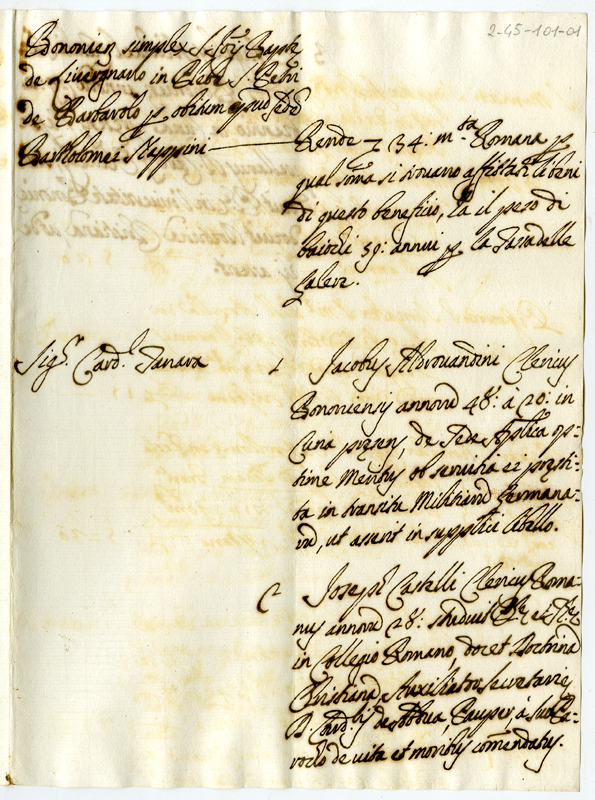 2-45-101-01
Bononien simplex S.
de Livergnano in Pleb. S. Petri
de Barbarolo p obitum
Bartholomei Nappini
Rende 34: m.ta Romana p
qual soma si trovano affittati li beni
di questo beneficio, hà il peso di
baiocchi 59: annui p la Tassa delle
Galere.
Sig.r Card.l Tanara
1 Jacobus Aldrouandini Clericus
Bononiensis annorũ 48: à 20: in
Curia pręsens, de Sede Aplica op-
time Meritus ob servitia ei pręsti-
ta in transitu Militiarũ Germana-
rũ, ut asserit in supplici libello.
2 Joseph Castelli Clericus Roma-
nus annorũ 28: studuit
in Collegio Romano, docet Doctrinã
Christianã, Auxiliator Secretarie
D. Card.lis de Abdua, Pauper, à suo Pa-
rocho de vita et moribus comẽndatus.